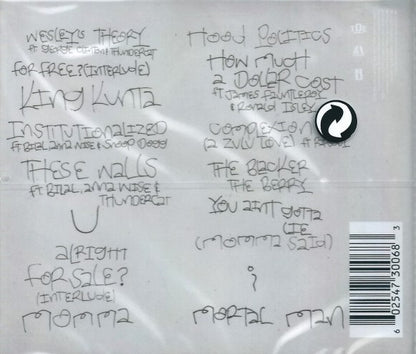 WESLEY'S THEORY
ft GEORGE CLINTON & THUNDERCAT
FOR FREE? (INTERLUDE)
KING KUNTA
INSTITUTIONALIZED
ft BILAL, ANNA WISE & SNOOP DOGG
THESE WALLS
ft BILAL, ANNA WISE &
THUNDERCAT
U
ALRIGHT
FOR SALE?
(INTERLUDE)
MOMMA
HOOD POLITICS
HOW MUCH
A DOLLAR COST
ft JAMES FAUNTLEROY
& RONALD ISLEY
COMPLEXION
(A ZULU LOVE) ft
THE BLACKER
THE BERRY
YOU AINT GOTTA
LIE
(MOMMA SAID)
i
MORTAL MAN
6 02547 30068 3